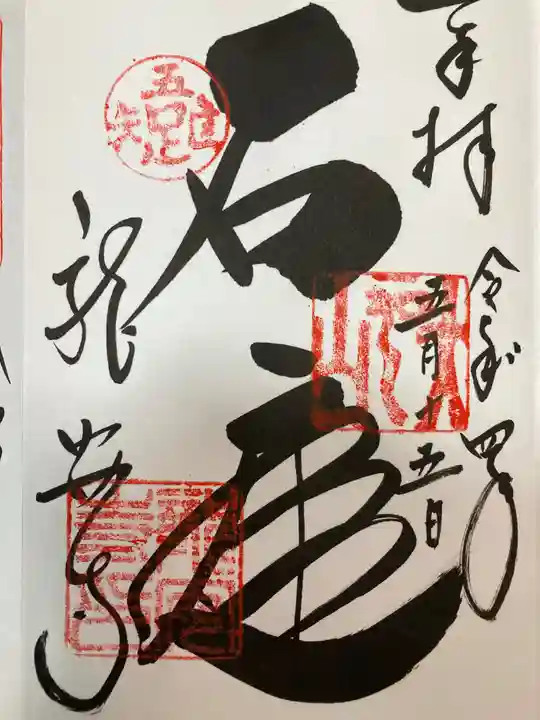 奉拝
令和四年
五月十五日
石庭
龍安寺
吾唯足知